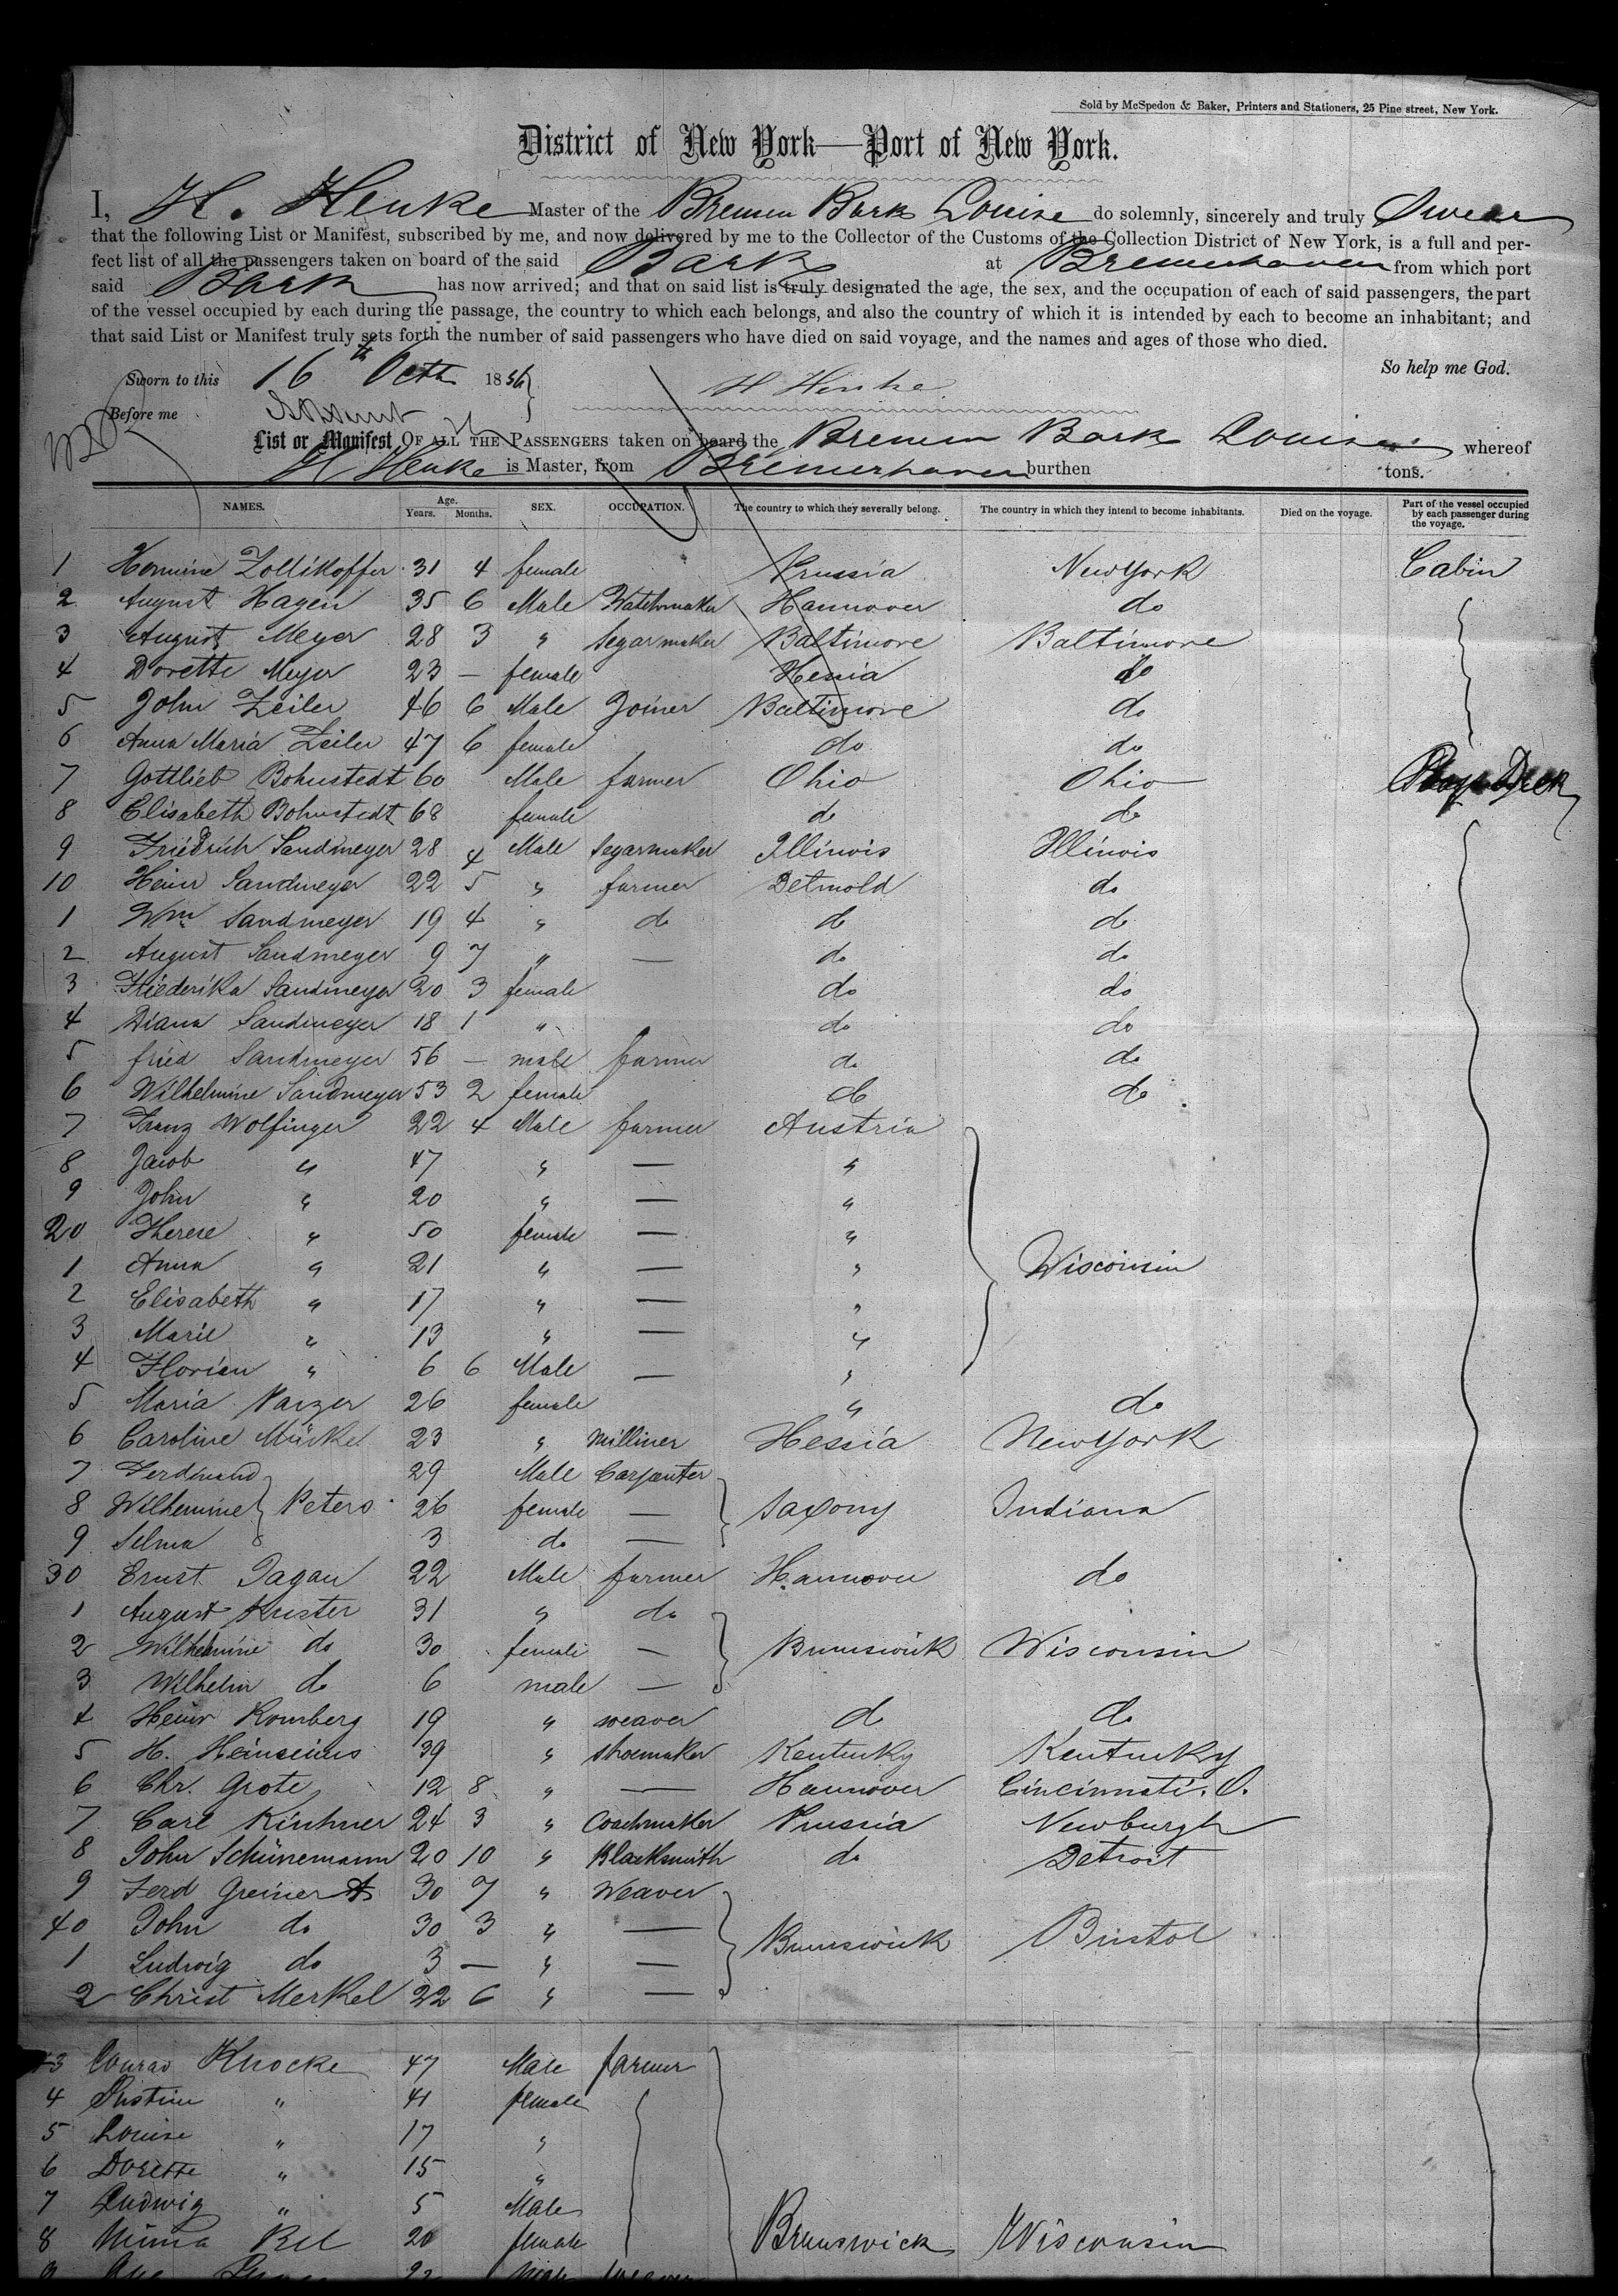 Sold by McSpedon & Baker, Printers and Stationers, 25 Pine street, New York.
District of New York—Port of New York.
I, H. Henke Master of the Bremen Bark Louise do solemnly, sincerely and truly Swear
that the following List or Manifest, subscribed by me, and now delivered by me to the Collector of the Customs of the Collection District of New York, is a full and per-
fect list of all the passengers taken on board of the said Bark at Bremerhaven from which port
said Bark has now arrived; and that on said list is truly designated the age, the sex, and the occupation of each of said passengers, the part
of the vessel occupied by each during the passage, the country to which each belongs, and also the country of which it is intended by each to become an inhabitant; and
that said List or Manifest truly sets forth the number of said passengers who have died on said voyage, and the names and ages of those who died.
So help me God.
Sworn to this 16th Octb 1856 H Henke
Before me
List or Manifest OF ALL THE PASSENGERS taken on board the Bremen Bark Louise whereof
H Henke is Master, from Bremerhaven burthen tons.
NAMES. Age. Years. Months. SEX. OCCUPATION. The country to which they severally belong. The country in which they intend to become inhabitants. Died on the voyage. Part of the vessel occupied by each passenger during the voyage.
1 Hermine Zollikoffer 31 4 female Prussia New York Cabin
2 August Hagen 35 6 Male Watchmaker Hannover do
3 August Meyer 28 3 " Segarmaker Baltimore Baltimore
4 Dorette Meyer 23 — female Hessia do
5 John Zeiler 46 6 Male Joiner Baltimore do
6 Anna Maria Zeiler 47 6 female do do
7 Gottlieb Bohnstedt 60 Male farmer Ohio Ohio
8 Elisabeth Bohnstedt 68 female do do
9 Friedrich Sandmeyer 28 4 Male Segarmaker Illinois Illinois
10 Heinr Sandmeyer 22 5 " farmer Detmold do
1 Wm Sandmeyer 19 4 " do do do
2 August Sandmeyer 9 7 " — do do
3 Friederika Sandmeyer 20 3 female do do
4 Diana Sandmeyer 18 1 " do do
5 fried Sandmeyer 56 — male farmer do do
6 Wilhelmine Sandmeyer 53 2 female do do
7 Franz Wolfinger 22 4 Male farmer Austria
8 Jacob " 47 " — "
9 John " 20 " — "
20 Therese " 50 female — "
1 Anna " 21 " — " Wisconsin
2 Elisabeth " 17 " — "
3 Marie " 13 " — "
4 Florian " 6 6 Male — "
5 Maria 26 female " do
6 Caroline Mürkel 23 " Milliner Hessia New York
7 Ferdinand 29 Male Carpenter
8 Wilhemine Peters 26 female — Saxony Indiana
9 Selma 3 do —
30 Ernst Pagan 22 Male farmer Hannover do
1 August Kuster 31 " do
2 Wilhelmine do 30 female — Brunswick Wisconsin
3 Wilhelm do 6 male —
4 Heinr Romberg 19 " weaver do do
5 H. Heinseius 39 " shoemaker Kentucky Kentucky
6 Chr. Grote 12 8 " — Hannover Cincinnati. O.
7 Carl Kirchner 24 3 " Coachmaker Prussia Newburgh
8 John Schünemann 20 10 " Blacksmith do Detroit
9 Ferd Greiner 30 7 " Weaver
40 John do 30 3 " — Brunswick Bristol
1 Ludwig do 3 — " —
2 Christ Merkel 22 6 " —
43 Conrad Knocke 47 Male farmer
4 Justine " 41 female
5 Louise " 17 "
6 Dorette " 15 "
7 Ludwig " 5 Male
8 Minna 20 female Brunswick Wisconsin
9 Aug 22 Male weaver